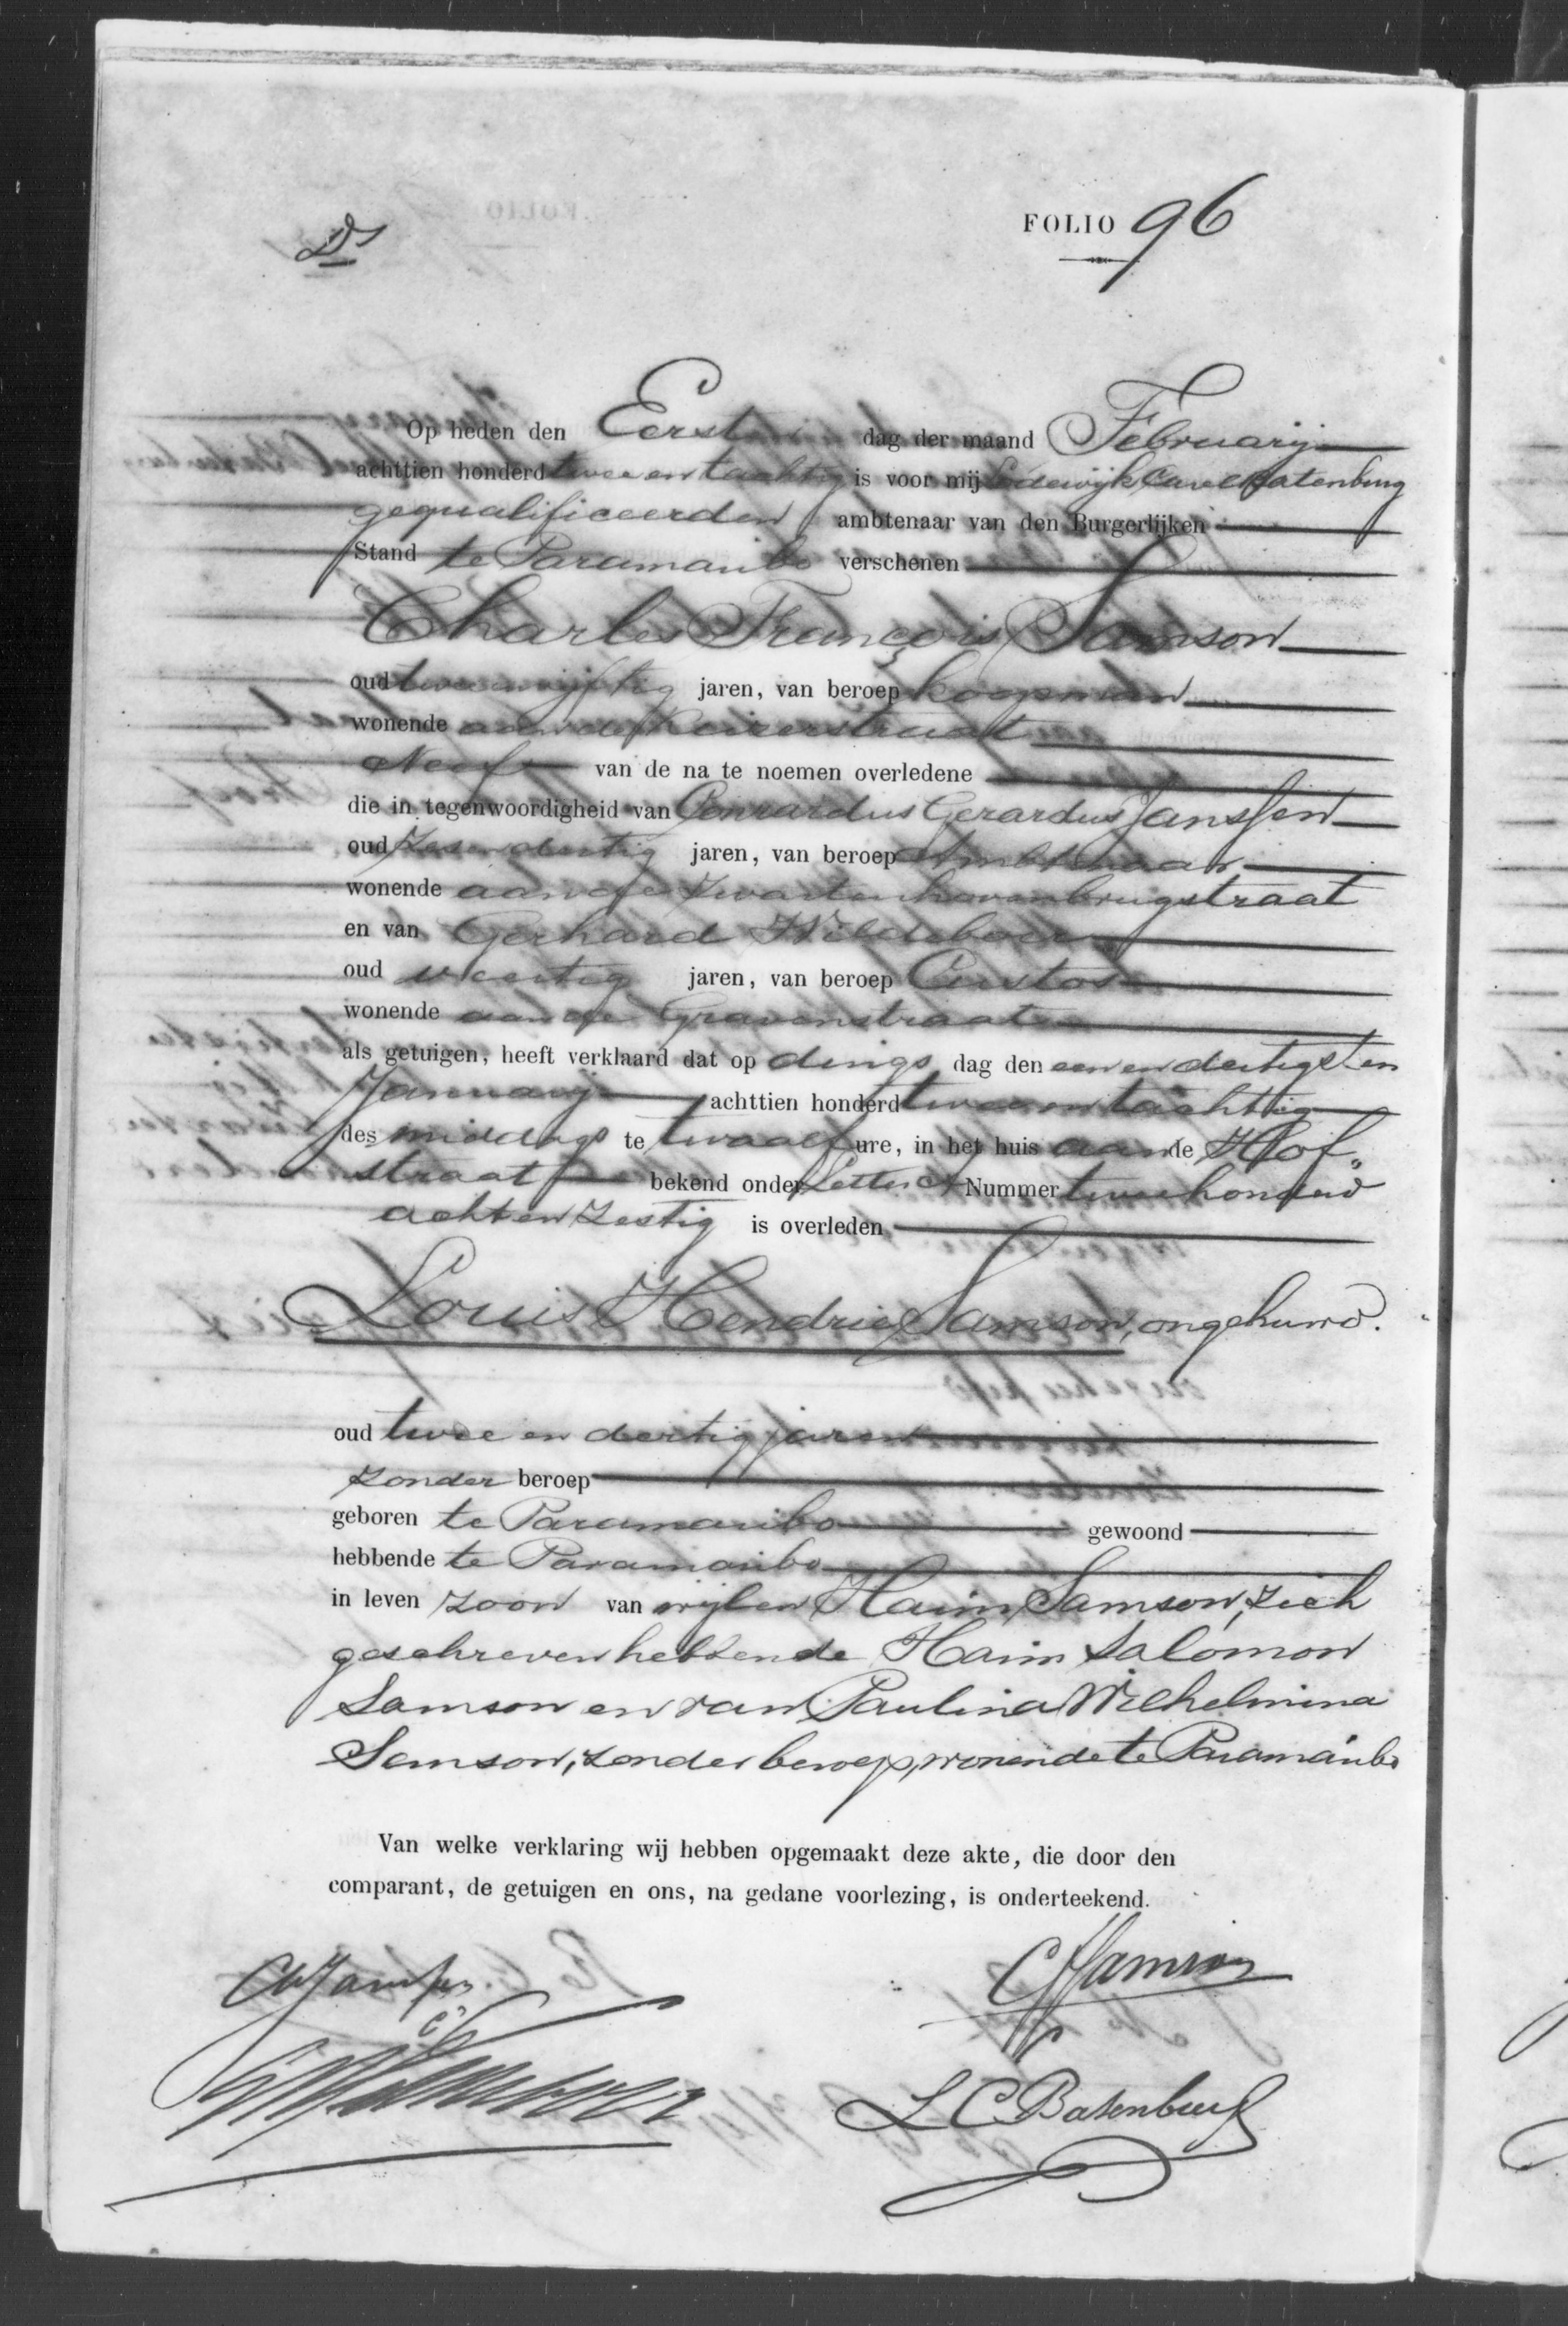 FOLIO 96
Ds
Op heden den Eersten dag der maand Februarij
achttien honderd twee en tachtig is voor mij Lodewijk Carel Batenburg
gequalificeerden ambtenaar van den Burgerlijken
Stand te Paramaribo verschenen
Charles François Samson
oud tweeenvijftig jaren, van beroep koopman
wonende aan de Keizerstraat
Neef van de na te noemen overledene
die in tegenwoordigheid van Conrardus Gerardus Janssen
oud zesendertig jaren, van beroep Ambtenaar
wonende aan de Zwartenhovenbrugstraat
en van Gerhard Wildeboer
oud veertig jaren, van beroep Custos
wonende aan de Gravenstraat
als getuigen, heeft verklaard dat op dings dag den eenendertigsten
Januarij achttien honderd twee en tachtig
des middags te twaalf ure, in het huis aan de Hof„
straat bekend onder Letter A Nummer tweehonderd
achtenzestig is overleden
Louis Hendrie Samson, ongehuwd.
oud twee en dertig jaren
zonder beroep
geboren te Paramaribo gewoond
hebbende te Paramaribo
in leven zoon van wijlen Haim Samson, zich
geschreven hebbende Haim Salomon
Samson en van Paulina Wilhelmina
Samson, zonder beroep, wonende te Paramaribo
Van welke verklaring wij hebben opgemaakt deze akte, die door den
comparant, de getuigen en ons, na gedane voorlezing, is onderteekend.
CG Janssen
CF Samson
G Wildeboer
L C Batenburg